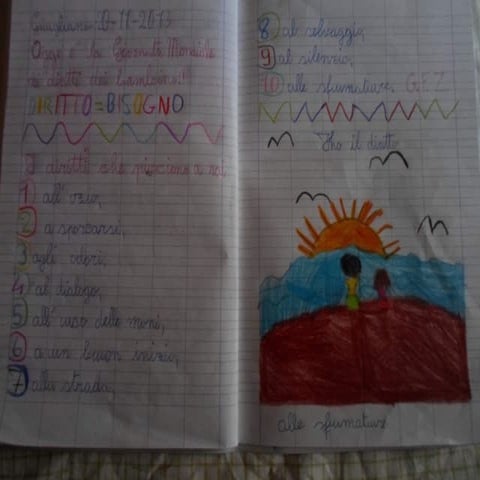 Giugliano: 0-11-2013
Oggi è la Giornata Mondiale
dei diritti dei bambini!
DIRITTO = BISOGNO
I diritti che piacciono a noi
1 all'ozio,
2 a sporcarsi,
3 agli odori,
4 al dialogo,
5 all'uso delle mani,
6 a un buon inizio,
7 alla strada,
8 al selvaggio,
9 al silenzio,
10 alle sfumature. G.F.Z.
Tho il diritto
alle sfumature